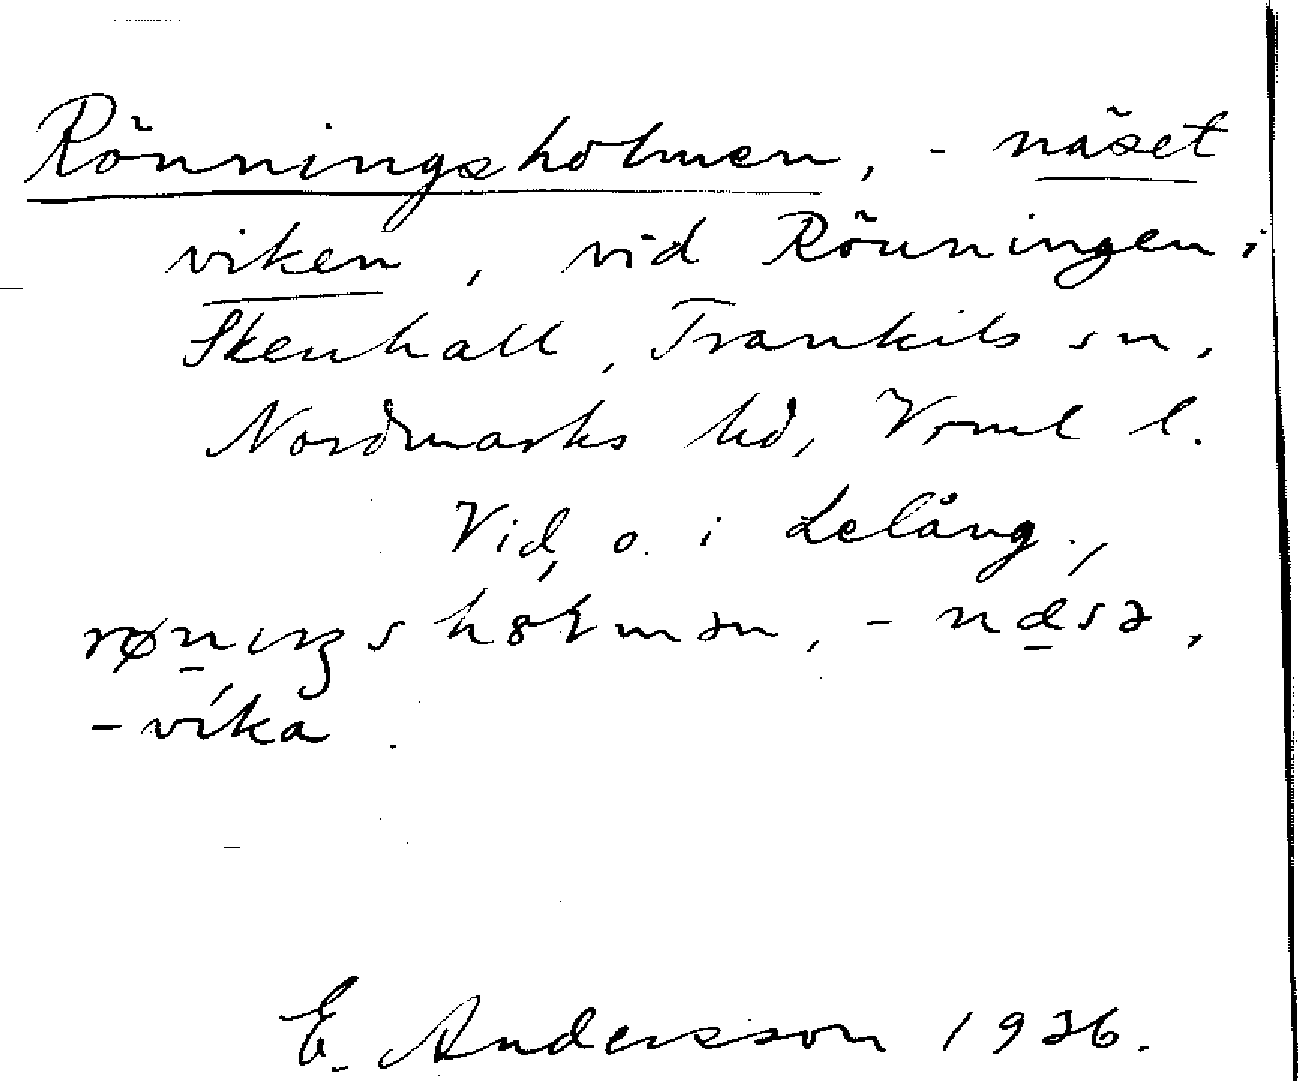 Rönningsholmen, - näset
viken, vid Rönningen i
Skenhall, Trankils sn,
Nordmarks hd, Vrml l.
Vid o. i Lelång.,
-vika.
E. Andersson 1936.